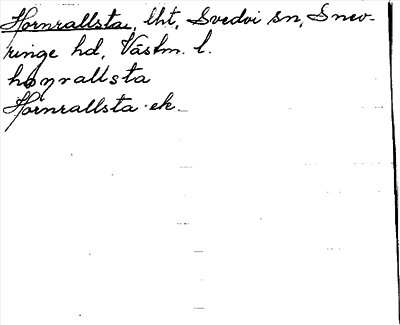 Hornrallsta, lht, Svedvi sn, Snev-
ringe hd, Västm. l.
hoṇrallsta
Hornrallsta ek.